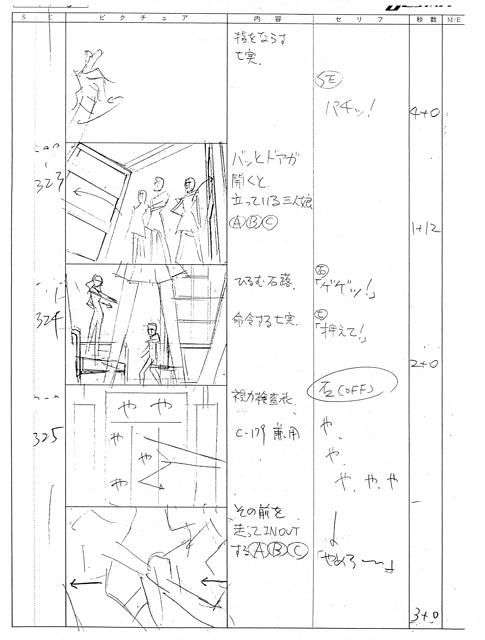 S C ピクチュア 内容 セリフ 秒数 M/E
指をならす
七実.
SE
パチッ!
4+0
323
バッとドアが
開くと
立っている三人娘
Ⓐ Ⓑ Ⓒ
1+12
324
ひるむ石蕗.
命令する七実.
石
「ゲゲッ!」
七
「押えて!」
2+0
325
や や
や
や
視力検査表.
C-179 兼用
石(OFF)
や.
や.
や.や.や
その前を
走ってIN OUT
する Ⓐ Ⓑ Ⓒ
「やめろ〜〜」
3+0